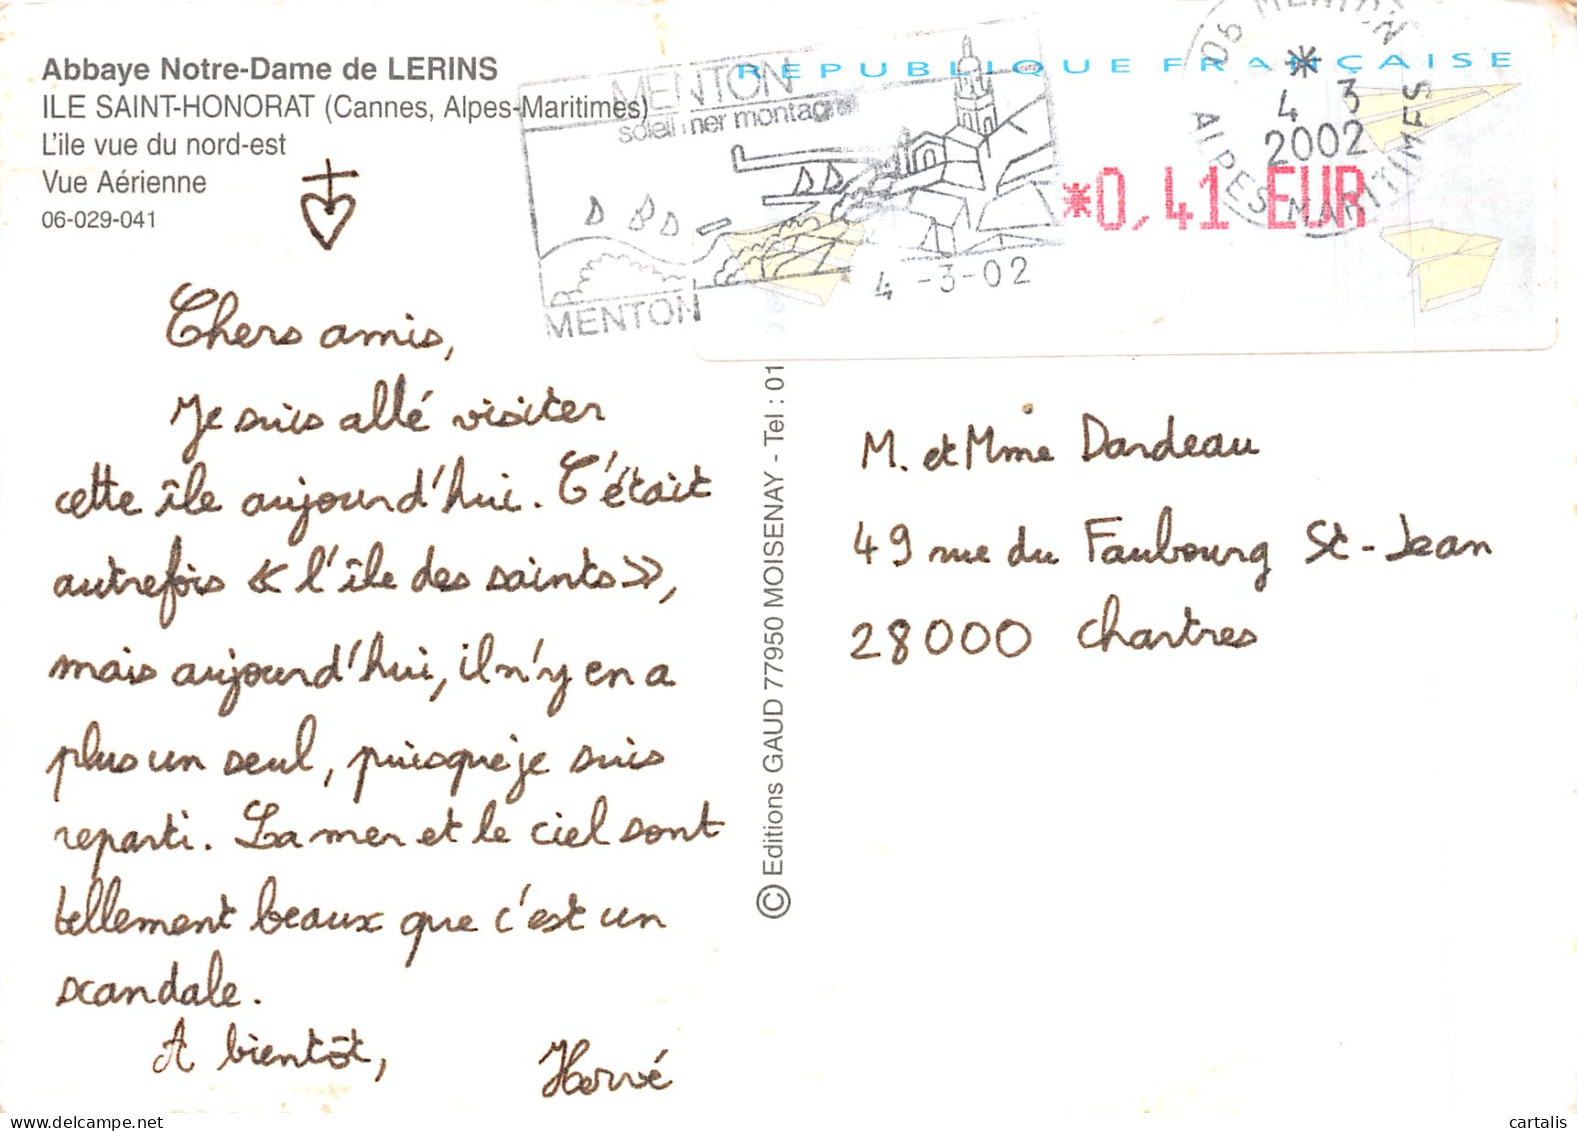 Abbaye Notre-Dame de LERINS
ILE SAINT-HONORAT (Cannes, Alpes-Maritimes)
L'ile vue du nord-est
Vue Aérienne
06-029-041
MENTON
soleil mer montagne
MENTON
4 -3-02
REPUBLIQUE FRANÇAISE
06 MENTON
*
4 3
2002
ALPES MARITIMES
*0,41 EUR
Chers amis,
Je suis allé visiter
cette île aujourd'hui. C'était
autrefois « l'île des saints »,
mais aujourd'hui, il n'y en a
plus un seul, puisque je suis
reparti. La mer et le ciel sont
tellement beaux que c'est un
scandale.
A bientôt,
Hervé
© Editions GAUD 77950 MOISENAY - Tel : 01
M. et Mme Dardeau
49 rue du Faubourg St-Jean
28000 Chartres
cartalis